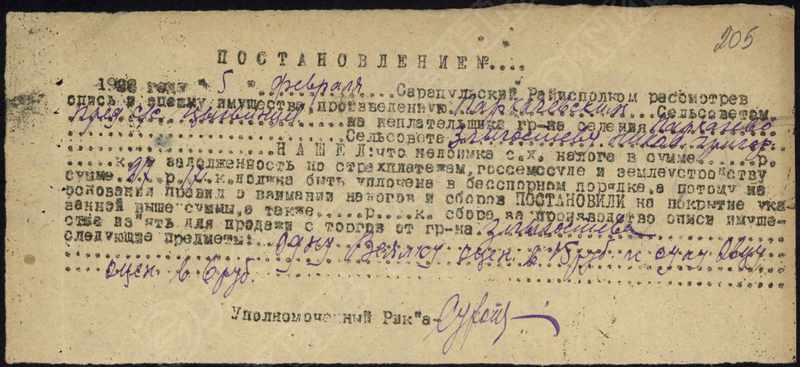 205
ПОСТАНОВЛЕНИЕ №....
1928 года "5" февраля.... Сарапульский Райисполком рассмотрев
опись и оценку имущества, произведенную Сельсоветом
на неплательщика гр-на селения
Сельсовета
НАШЕЛ: что недоимка с.х. налога в сумме.....р.
....к. задолженность по страхплатежам, госсемссуде и землеустройству
сумме 27 р. к. должна быть уплочена в бесспорном порядке, а потому на
основании правил о взимании налогов и сборов ПОСТАНОВИЛИ на покрытие ука
занной выше суммы, а также.....р.....к. сбора за производство описи имуще-
ства из"ять для продажи с торгов от гр-на
следующие предметы: Одну оцен в 15 руб и одну овцу
оцен. в 6 руб.
Уполномоченный Рик"а